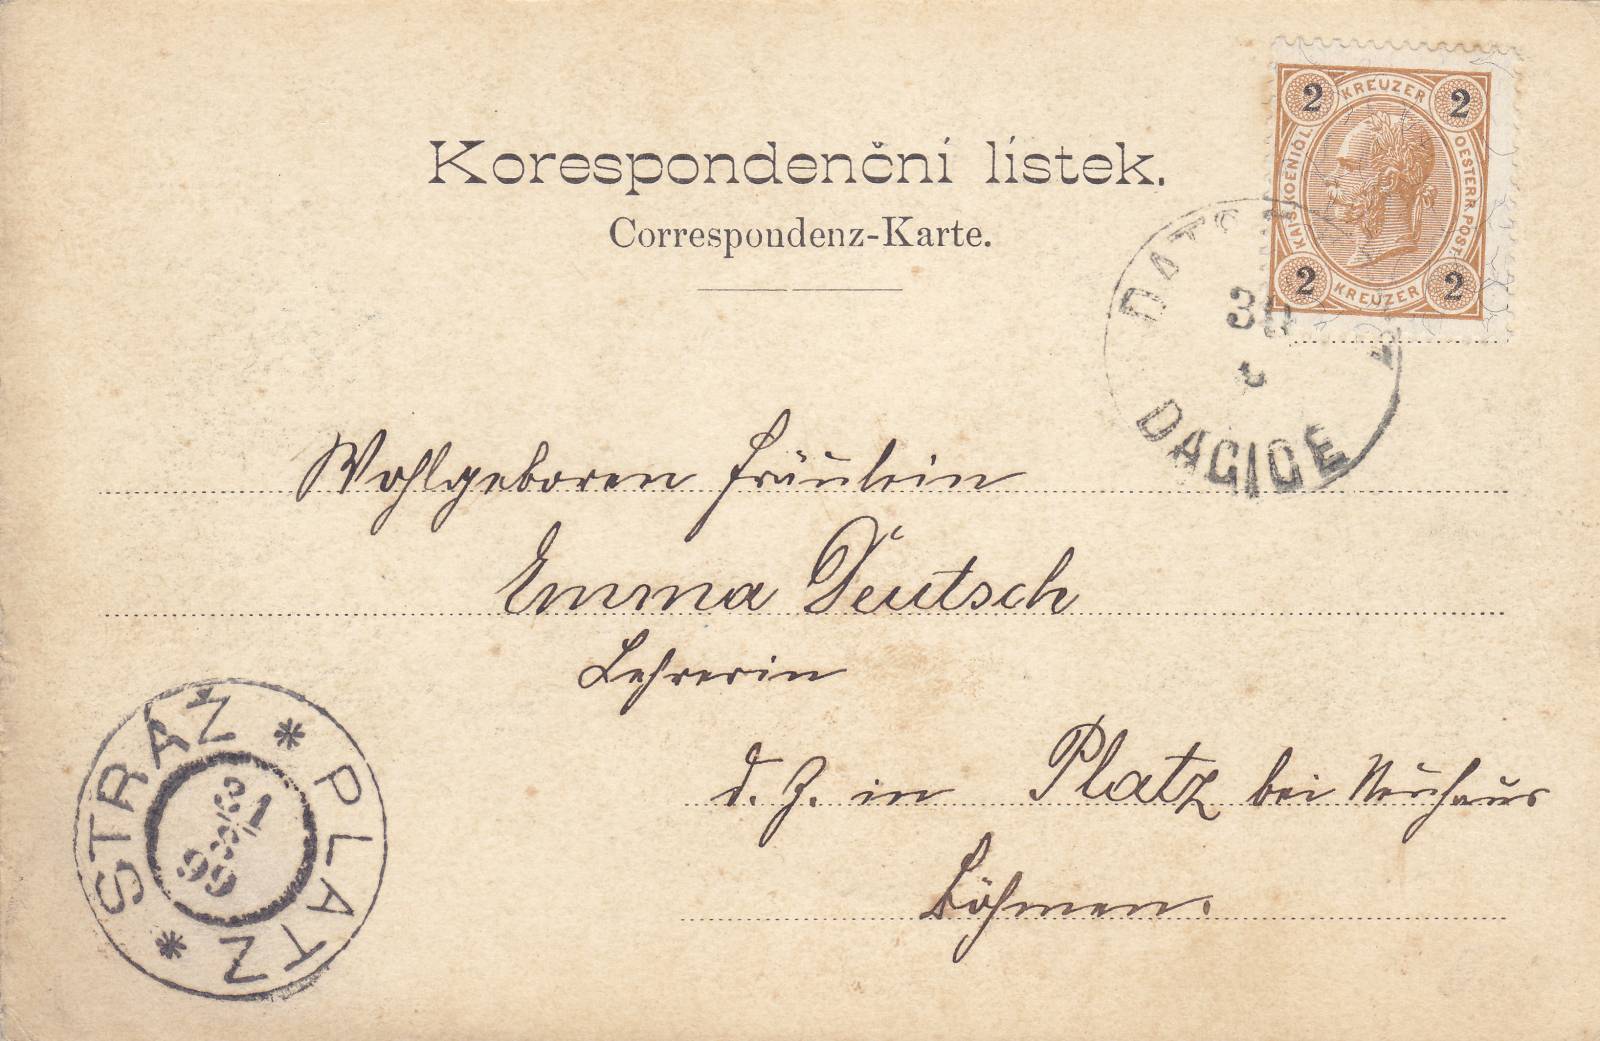 Korespondenční lístek.
Correspondenz-Karte.
2 KREUZER 2
KAIS. KOENIGL. OESTERR. POST.
2 KREUZER 2
DATS
30
DACICE
Wohlgeboren Fräulein
Emma Deutsch
Lehrerin
d. Z. in Platz bei Neuhaus
Böhmen.
STRÁŽ * PLATZ *
31
8
99